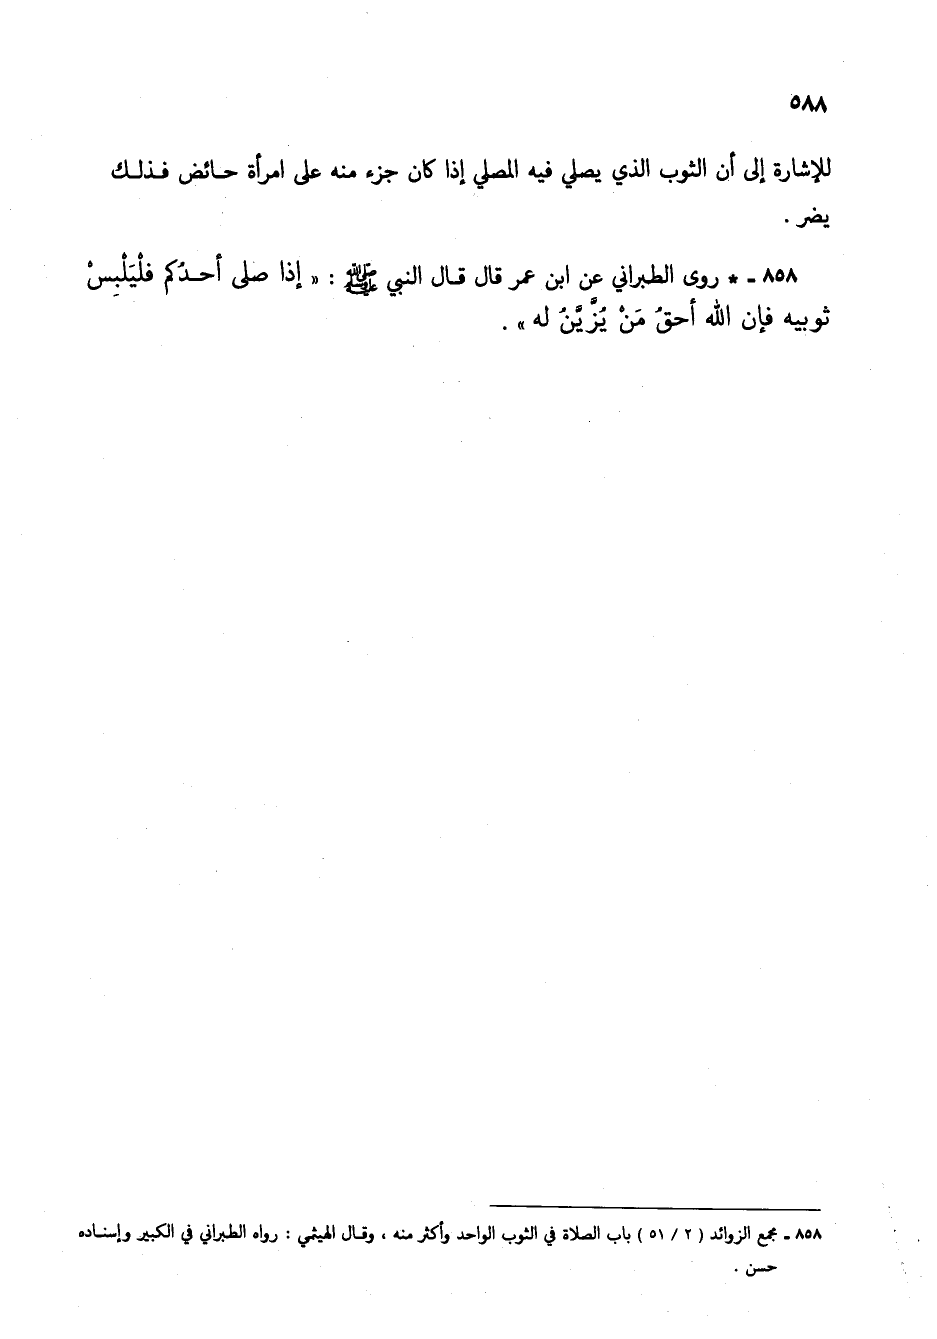 ٥٨٨
للإشارة إلى أن الثوب الذي يصلي فيه المصلي إذا كان جزء منه على امرأة حـائض فـذلـك
يضر .
٨٥٨ ـ * روى الطبراني عن ابن عمر قال قـال النبي ﷺ : « إذا صلى أحـدُكم فلْيَلْبِسْ
ثوبيه فإن الله أحقُ مَنْ يُزَّيَّنُ له » .
٨٥٨ ـ مجمع الزوائد ( ٢ / ٥١ ) باب الصلاة في الثوب الواحد وأكثر منه ، وقـال الهيثمي : رواه الطبراني في الكبير وإسنـاده
حسن .